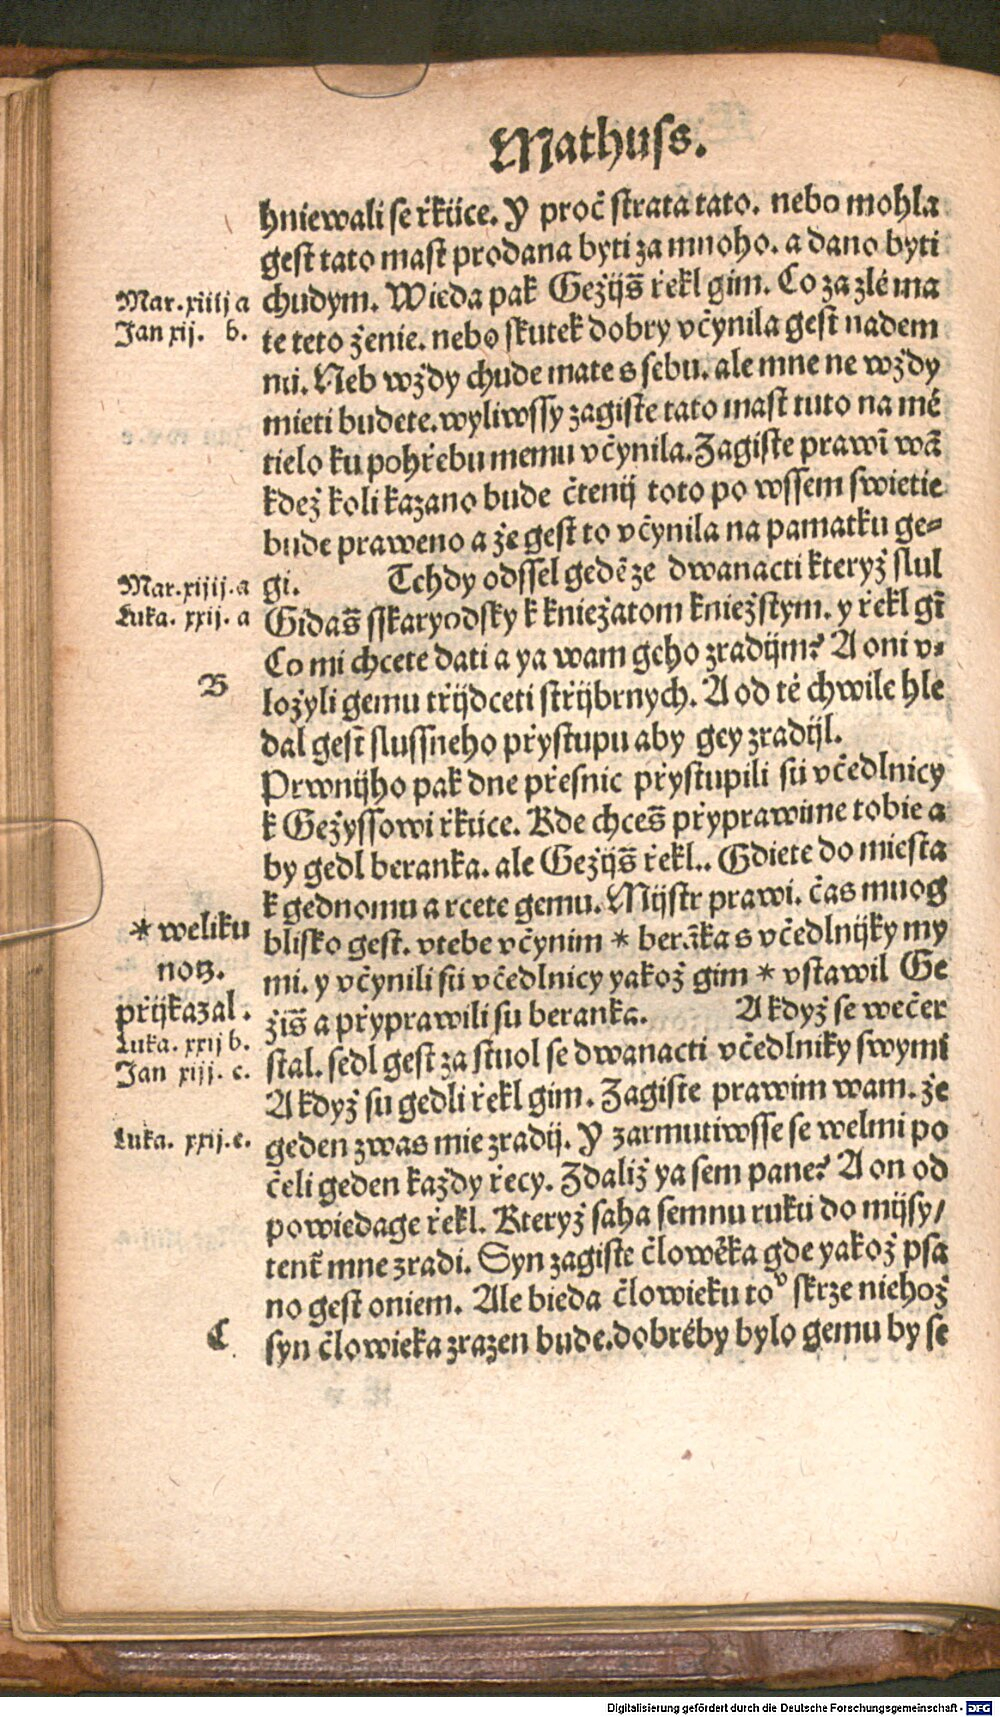 Mathuss.
hniewali se řkúce. Y proč strata tato. nebo mohla
gest tato mast prodana byti za mnoho. a dano byti
Mar. xiiij a
chudym. Wieda pak Gežijš řekl gim. Co za zlé ma
Jan xij. b.
te teto ženie. nebo skutek dobry včynila gest nadem
mi. Neb wždy chude mate s sebu. ale mne ne wždy
mieti budete. wyliwssy zagiste tato mast tuto na mé
tielo ku pohřebu memu včynila. Zagiste prawī wā
kdež koli kazano bude čtenij toto po wssem swietie
bude praweno a že gest to včynila na pamatku ge⸗
Mar. xiiij. a
gi. Tehdy odssel gedē ze dwanacti kteryž slul
Luka. xxij. a
Gidaš sskaryodsky k kniežatom kniežstym. y řekl gī
Co mi chcete dati a ya wam geho zradijm? A oni v⸗
B
ložyli gemu třijdceti střijbrnych. A od té chwile hle
dal gest slussneho přystupu aby gey zradijl.
Prwnijho pak dne přesnic přystupili sú včedlnicy
k Gežyssowi řkúce. Kde chceš přyprawime tobie a
by gedl beranka. ale Gežijš řekl.. Gdiete do miesta
k gednomu a rcete gemu. Mijstr prawi. čas muog
* weliku
blisko gest. vtebe včynim * berāka s včedlnijky my
notz.
mi. y včynili sú včedlnicy yakož gim * vstawil Ge
přijkazal.
žiš a přyprawili su beranka. A když se wečer
Luka. xxij b.
stal. sedl gest za stuol se dwanacti včedlniky swymi
Jan xiij. c.
A když su gedli řekl gim. Zagiste prawim wam. že
Luka. xxij. e.
geden zwas mie zradij. Y zarmutiwsse se welmi po
čeli geden každy řecy. Zdaliž ya sem pane? A on od
powiedage řekl. Kteryž saha semnu rukú do mijsy/
tenť mne zradi. Syn zagiste člowěka gde yakož psa
no gest oniem. Ale bieda člowieku toͮ skrze niehož
C
syn člowieka zrazen bude. dobréby bylo gemu by se
Digitalisierung gefördert durch die Deutsche Forschungsgemeinschaft - DFG